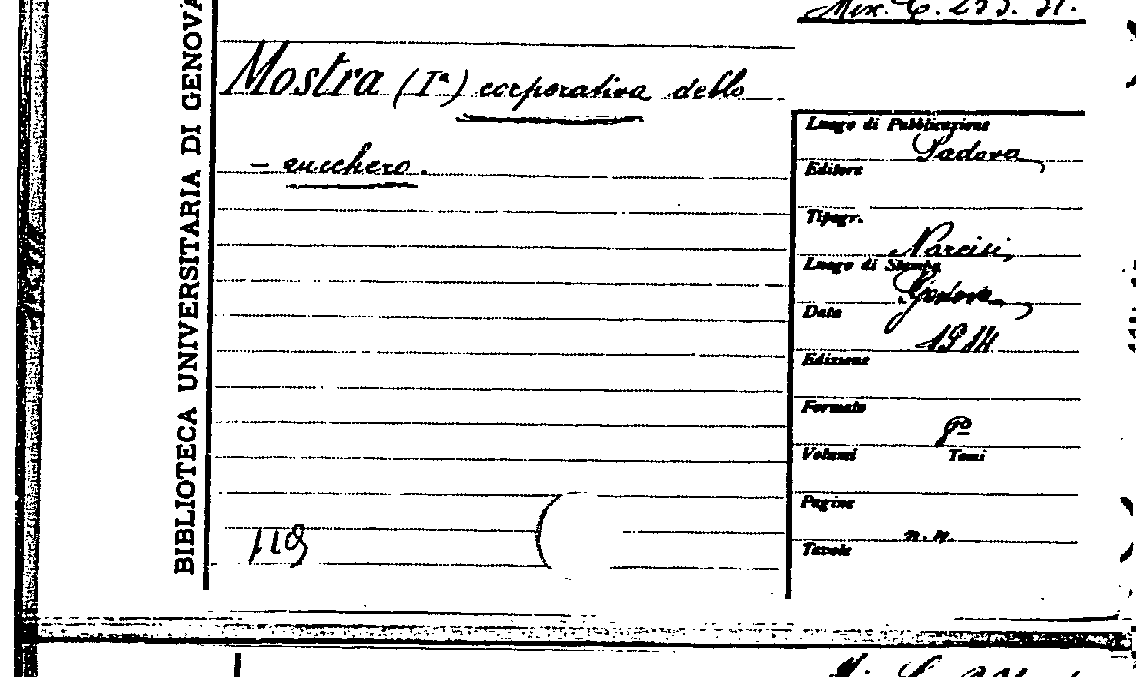 Misc. C. 255. 31.
BIBLIOTECA UNIVERSITARIA DI GENOVA
Mostra (Iª) corporativa dello
- zucchero.
Luogo di Pubblicazione
Padova
Editore
Tipogr.
Narcisi,
Luogo di Stampa
Data
Edizione
Formato
8º
Volumi Tomi
Pagine
n. n.
Tavole
119